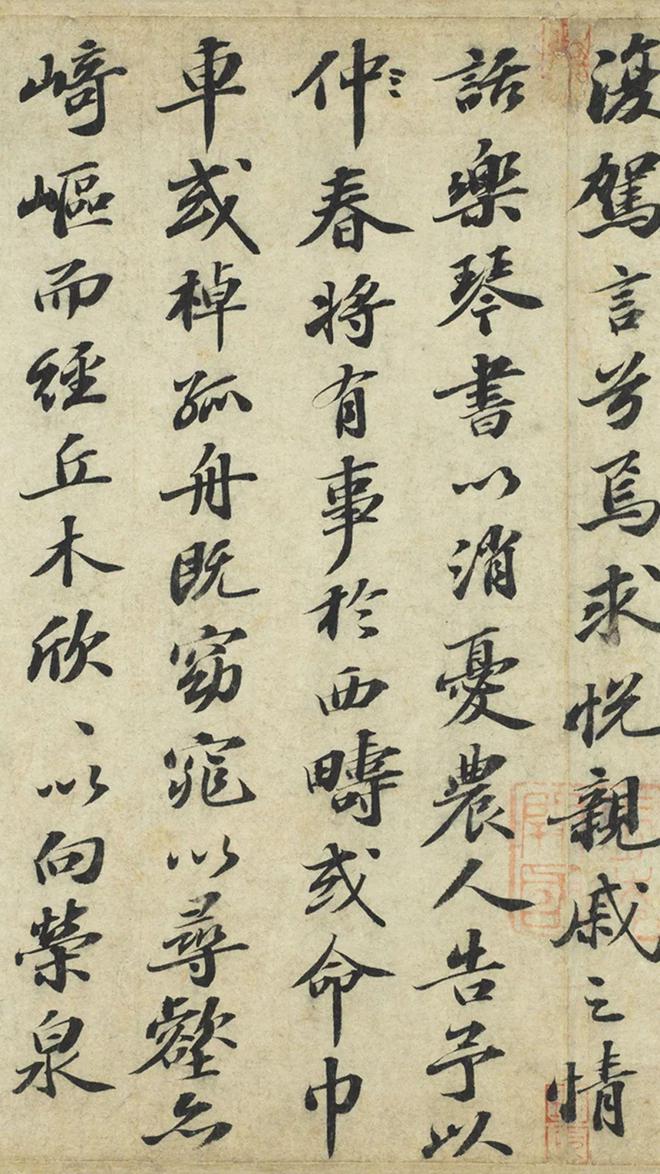 復駕言兮焉求悅親戚之情
話樂琴書以消憂農人告予以
仲春將有事於西疇或命巾
車或棹孤舟既窈窕以尋壑亦
崎嶇而經丘木欣〻以向榮泉